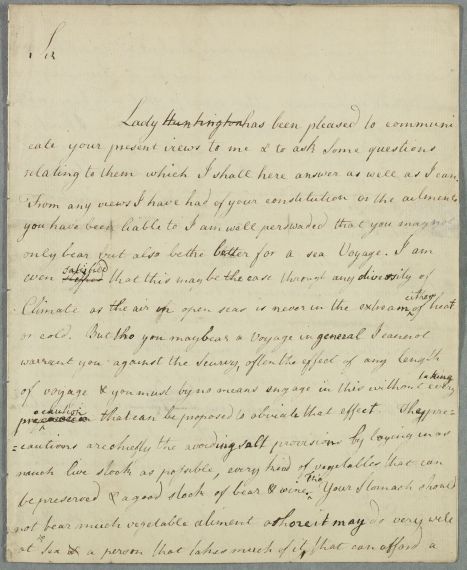 Sir
Lady Huntington has been pleased to communi
cate your present views to me & to ask some questions
relating to them which I shall here answer as well as I can.
From any views I have had of your constitution or the ailments
you have been liable to I am well perswaded that you may not
only bear but also be the better for a sea Voyage. I am
even satisfied that this may be the case through any diversity of
Climate as the air in open seas is never in the extream either of heat
or cold. But tho you may bear a Voyage in general I cannot
warrant you against the Scurvy often the effect of any length
of voyage & you must by no means engage in this without taking every
precaution that can be proposed to obviate that effect. The pre=
=cautions are chiefly the avoiding salt provisions by laying in as
much live stock as possible, every kind of vegetables that can
be preserved & a good stock of bear & wine. Tho Your stomach should
not bear much vegetable aliment ashore it may do very well
at Sea & a person that takes much of it, that can afford a